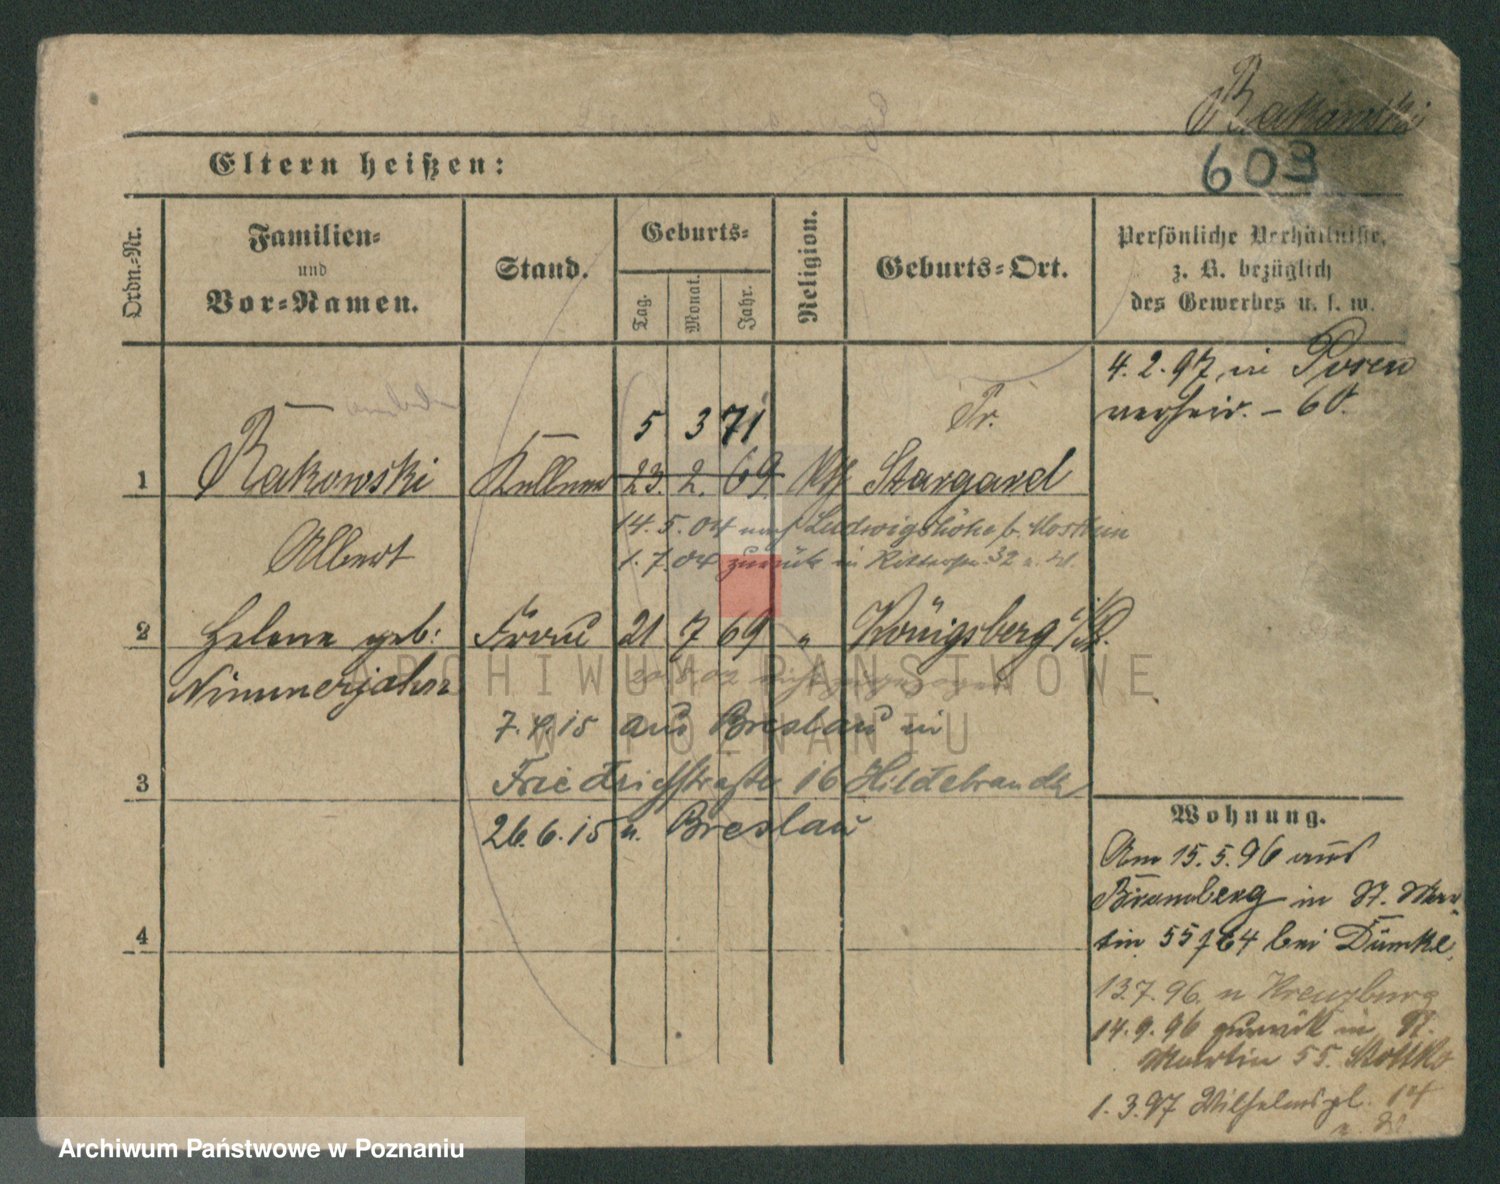 Rakowski
603
Eltern heißen:
Ordn.-Nr.
Familien-
und
Vor-Namen.
Stand.
Geburts-
Tag.
Monat.
Jahr.
Religion.
Geburts-Ort.
Persönliche Verhältnisse,
z. B. bezüglich
des Gewerbes u. s. w.
4. 2. 97 in Posen
verheir. – 60.
5 3 71 Pr.
1 Rakowski Kellner 23. 2. 69 Stargard
Albert
14. 5. 04 nach Ludwigshöhe b. Moschin
1. 7. 04 zurück in Ritterstr. 32
2 Helene geb: Frau 21 7 69 " Königsberg i/P.
Nimmerjahn
7. 15 aus Breslau in
3 Friedrichstraße 16 Hildebrandt
26. 6. 15 n. Breslau
4
Wohnung.
Am 15. 5. 96 aus
Bromberg in St. Mar-
tin 55/64 bei Dümke.
13. 7. 96. n Kreuzburg
14. 9. 96 zurück in St.
Martin 55.
1. 3. 97 Wilhelmspl. 14
ARCHIWUM PAŃSTWOWE
W POZNANIU
Archiwum Państwowe w Poznaniu